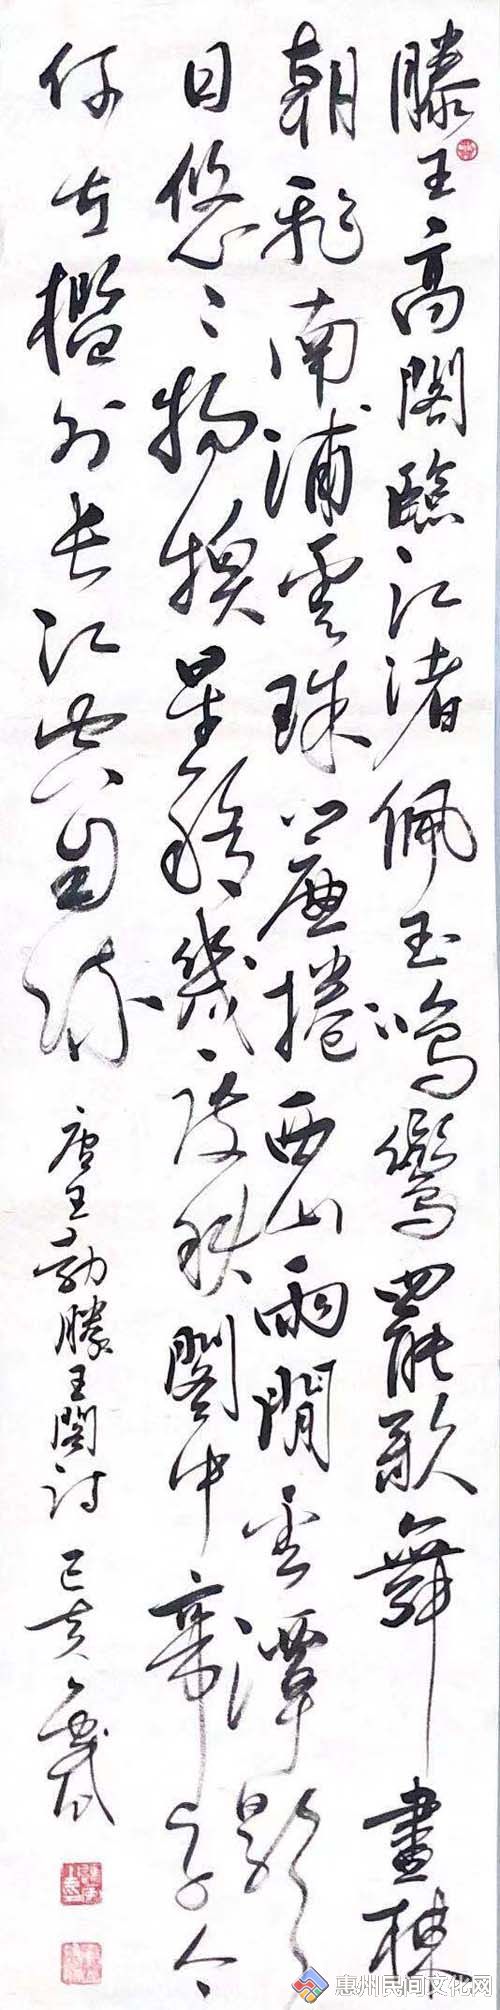 滕王高閣臨江渚佩玉鳴鸞罷歌舞畫棟
朝飛南浦雲珠簾捲西山雨閒雲潭影
日悠〻物換星移幾度秋閣中帝子今
何在檻外長江空自流
唐王勃滕王閣詩 己亥
惠州民间文化网